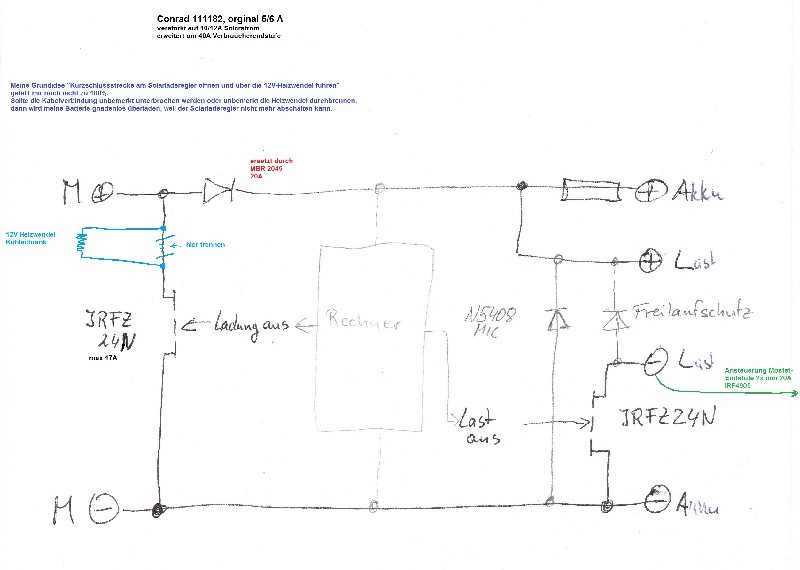 Conrad 111182, orginal 5/5 A
verstärkt auf 10/12A Solarstrom
erweitert um 40A Verbraucherendstufe
Meine Grundidee "Kurzschlussstrecke am Solarladeregler öffnen und über die 12V-Heizwendel führen"
gefällt mir noch nicht zu 100%.
Sollte die Kabelverbindung unbemerkt unterbrochen werden oder unbemerkt die Heizwendel durchbrennen,
dann wird meine Batterie gnadenlos überladen, weil der Solarladeregler nicht mehr abschalten kann.
ersetzt durch
MBR 2045
20A
M + 
+ Akku
12V Heizwendel
Kühlschrank
hier trennen
+ Last
IRFZ
24N
max 17A
Ladung aus
Rechner
N5408
MIC
Freilaufschutz
- Last
Ansteuerung Mosfet-
Endstufe 2x min 20A
IRF4905
Last
aus
IRFZ24N
M -
- Akku